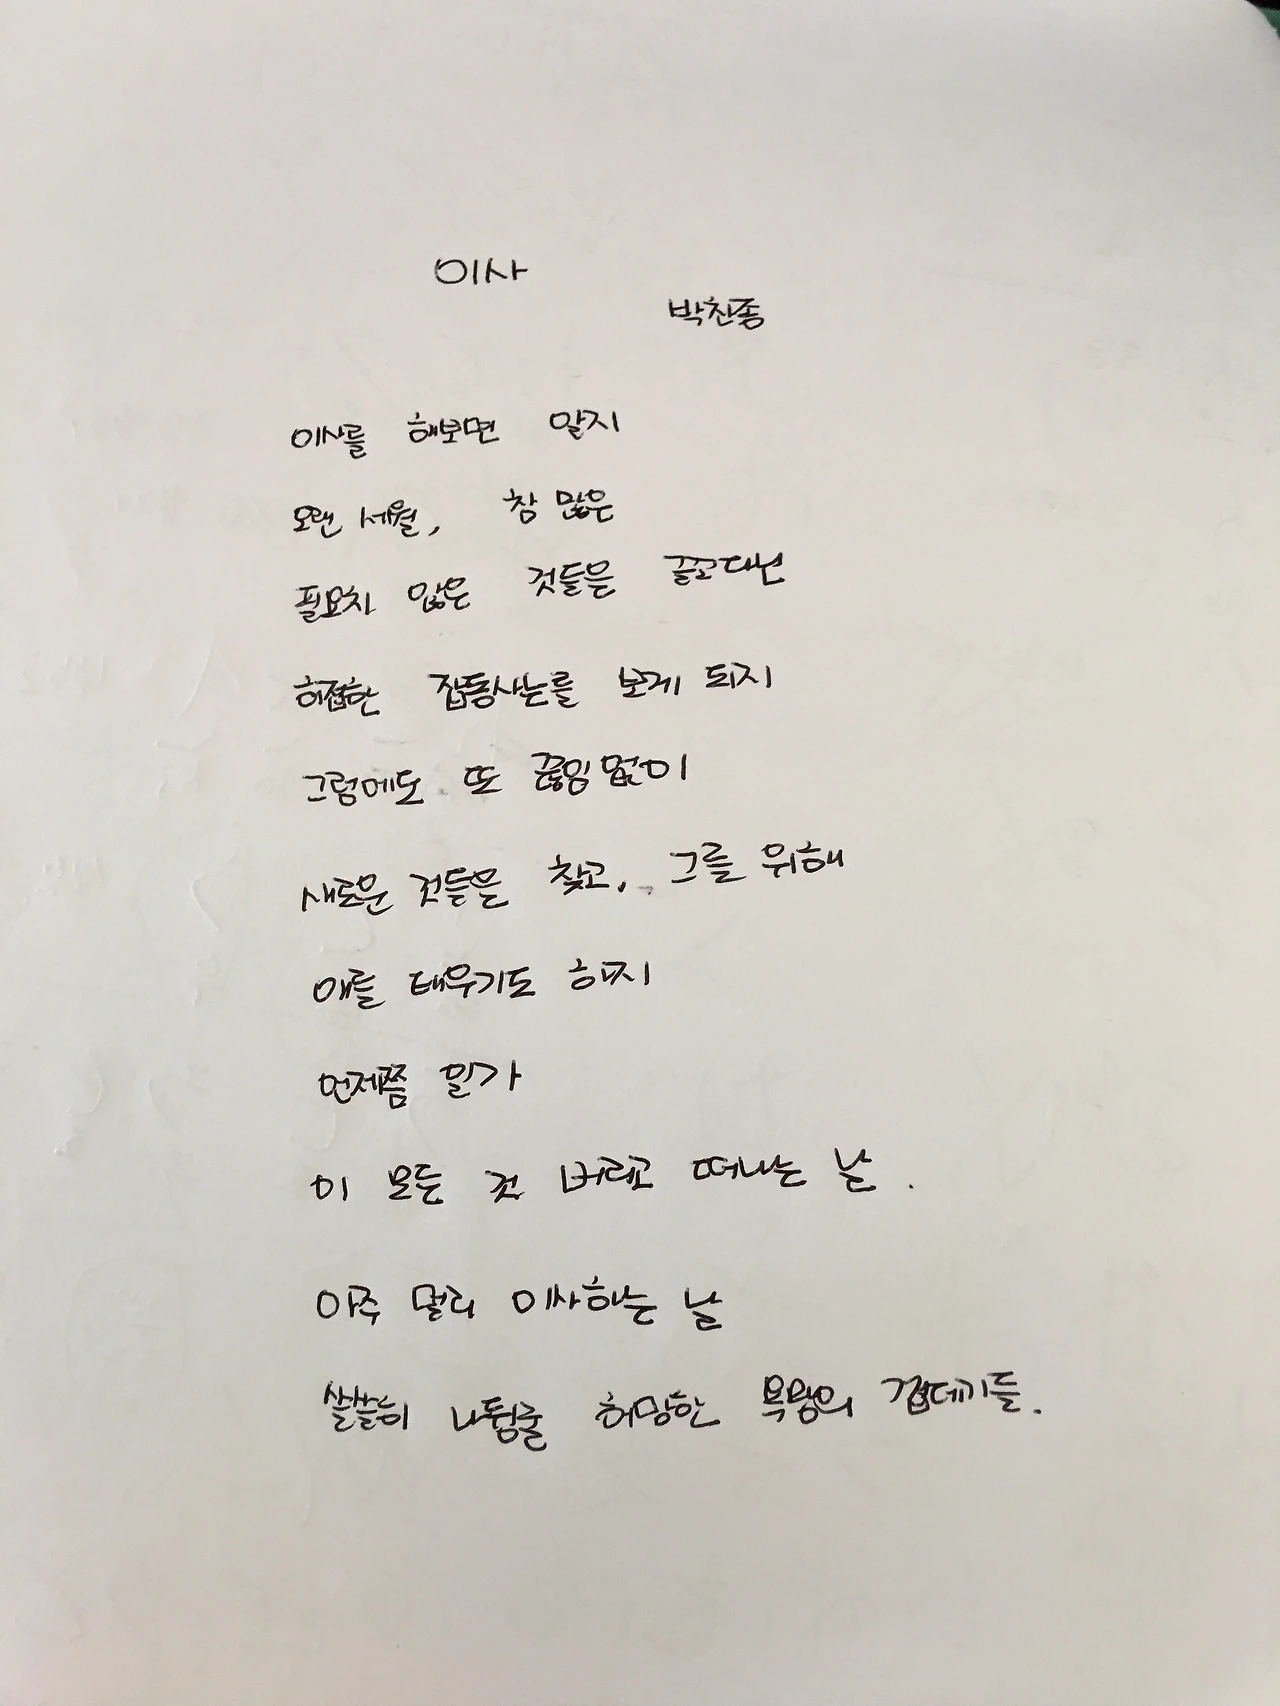 이사
박찬종
이사를 해보면 알지
오랜 세월, 참 많은
필요치 않은 것들은 끌고다닌
허접한 잡동사는를 보게 되지
그럼에도 또 끊임없이
새로운 것들은 찾고, 그를 위해
애를 태우기도 하지
언제쯤 일가
이 모든 것 버리고 떠나는 날.
아주 멀리 이사하는 날
쓸쓸히 나뒹굴 허망한 욕망의 껍데기들.